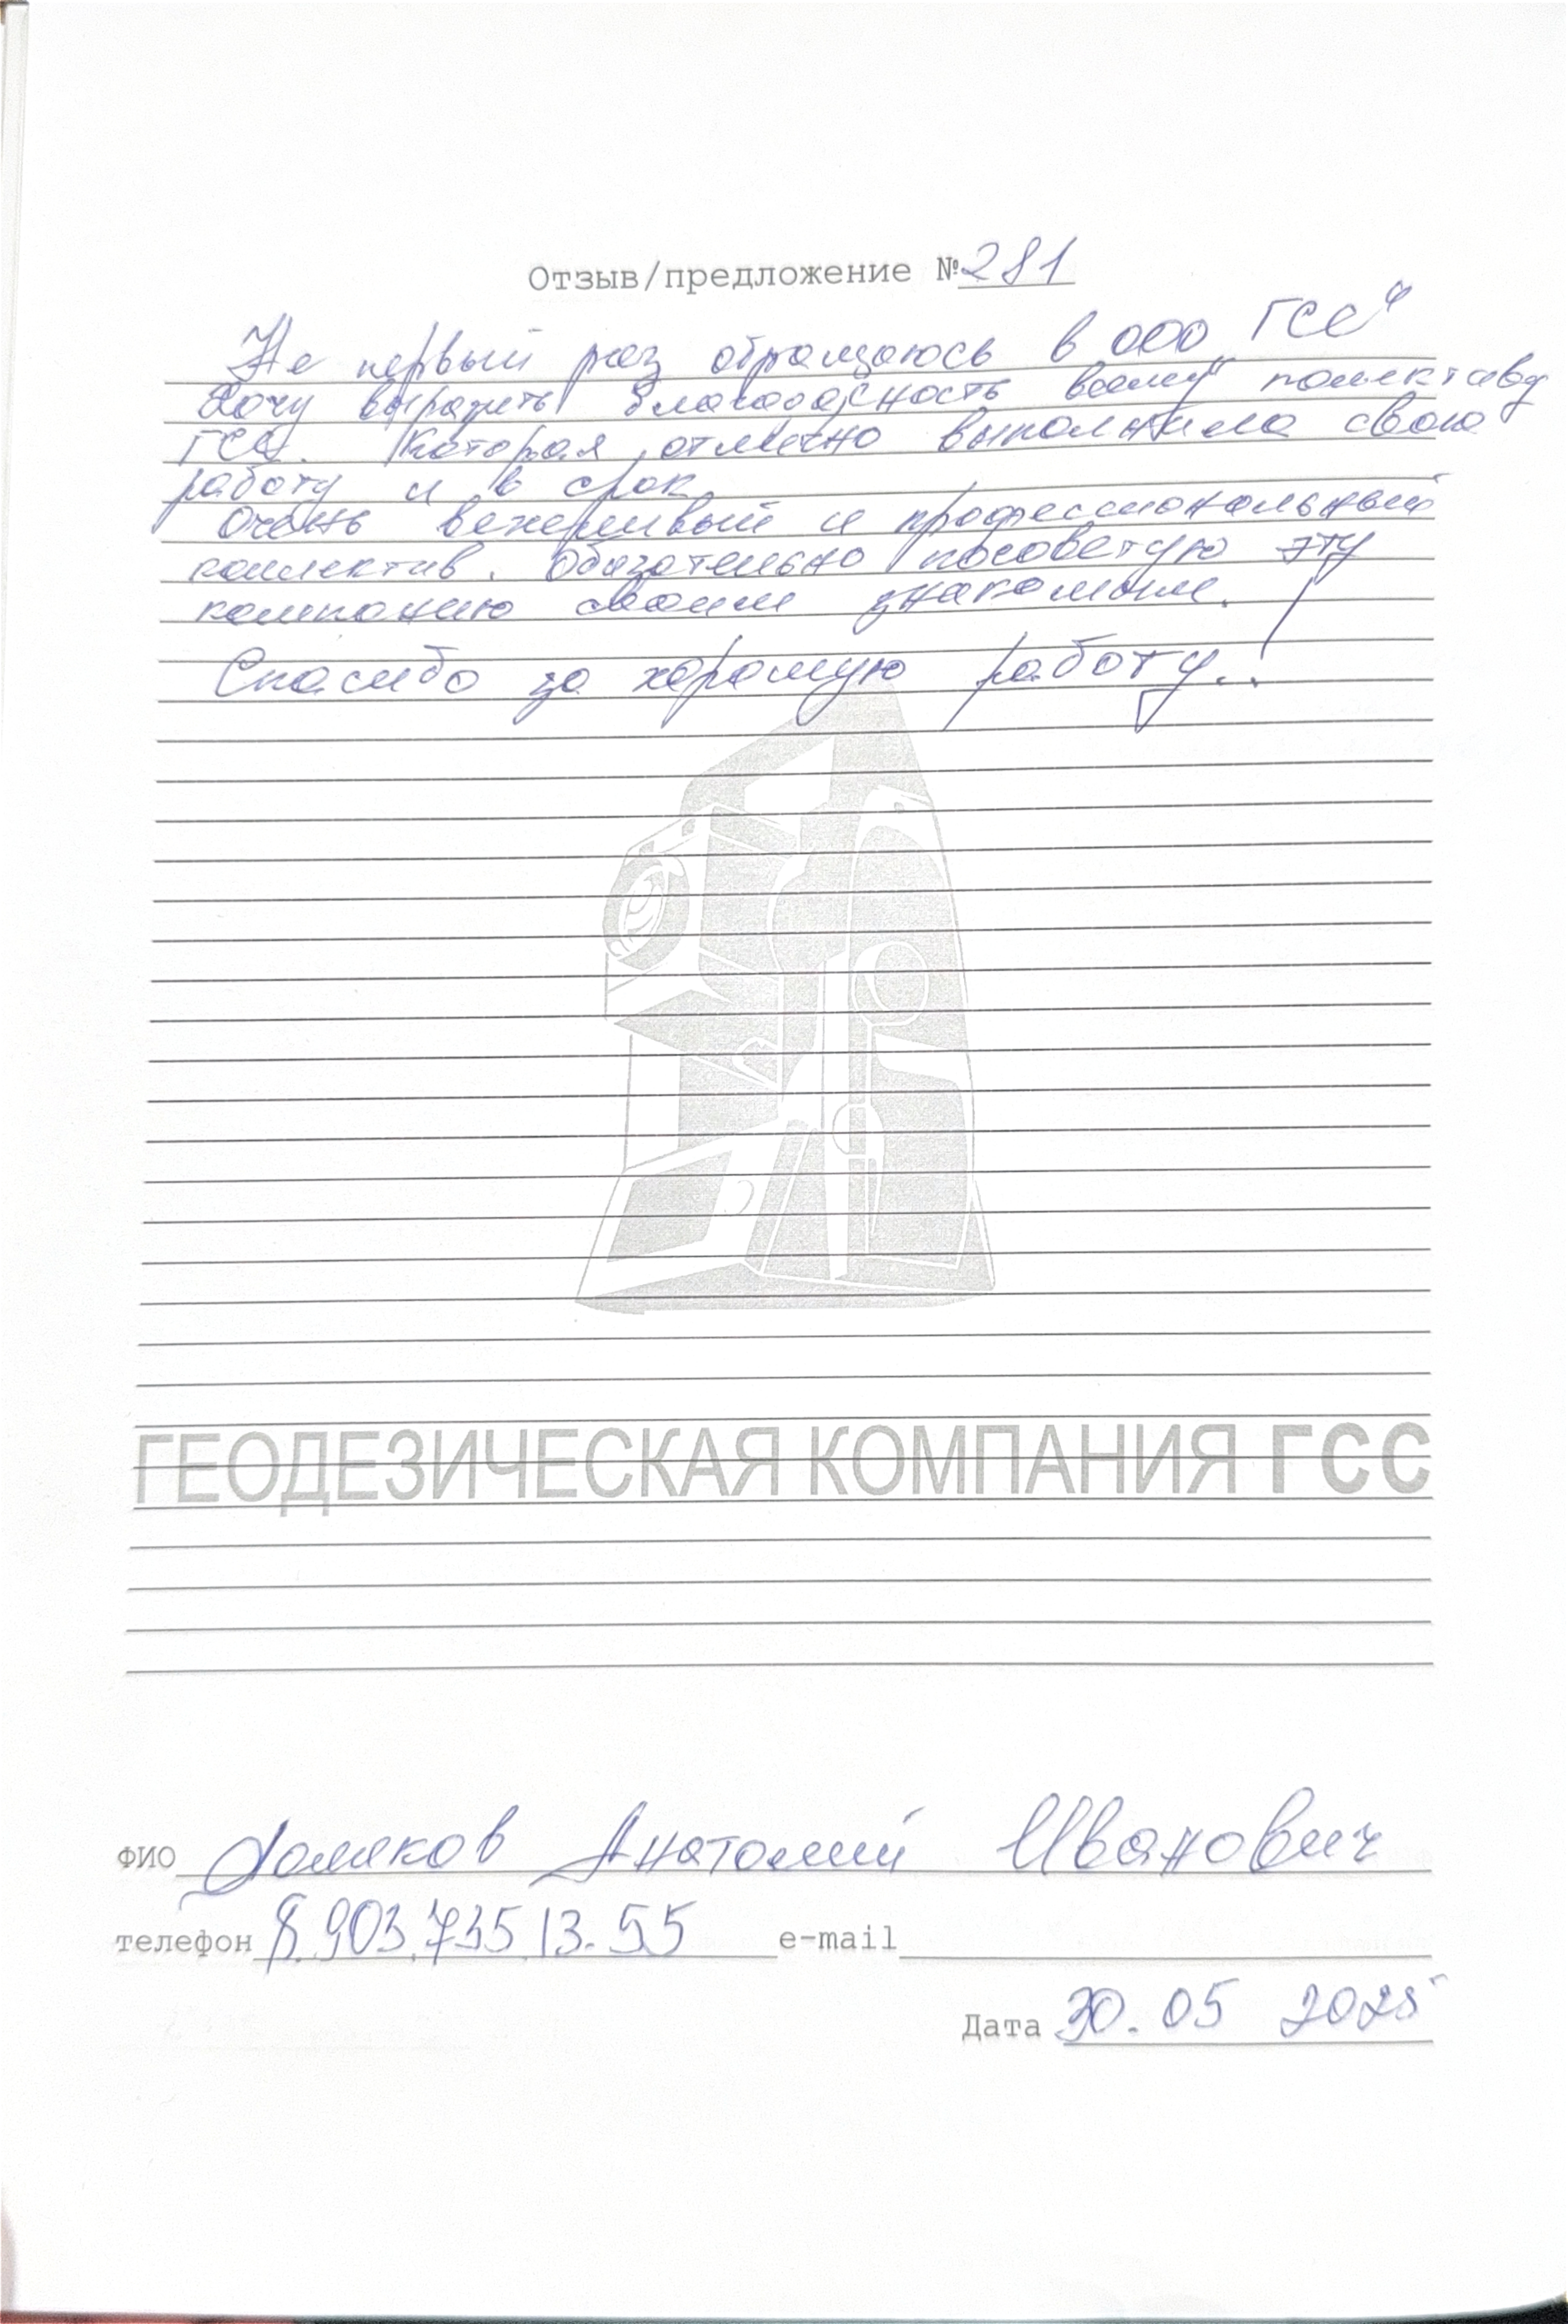 Отзыв/предложение №281
Не первый раз обращаюсь в ООО „ГСС“
Хочу выразить благодарность всему коллективу
ГСС. Которая отлично выполнила свою
работу и в срок
Очень вежливый и профессиональный
коллектив. Обязательно посоветую эту
компанию своим знакомым.
Спасибо за хорошую работу..!
ГЕОДЕЗИЧЕСКАЯ КОМПАНИЯ ГСС
ФИО Анатолий Иванович
телефон 8.903.735.13.55 e-mail
Дата 30.05 2025